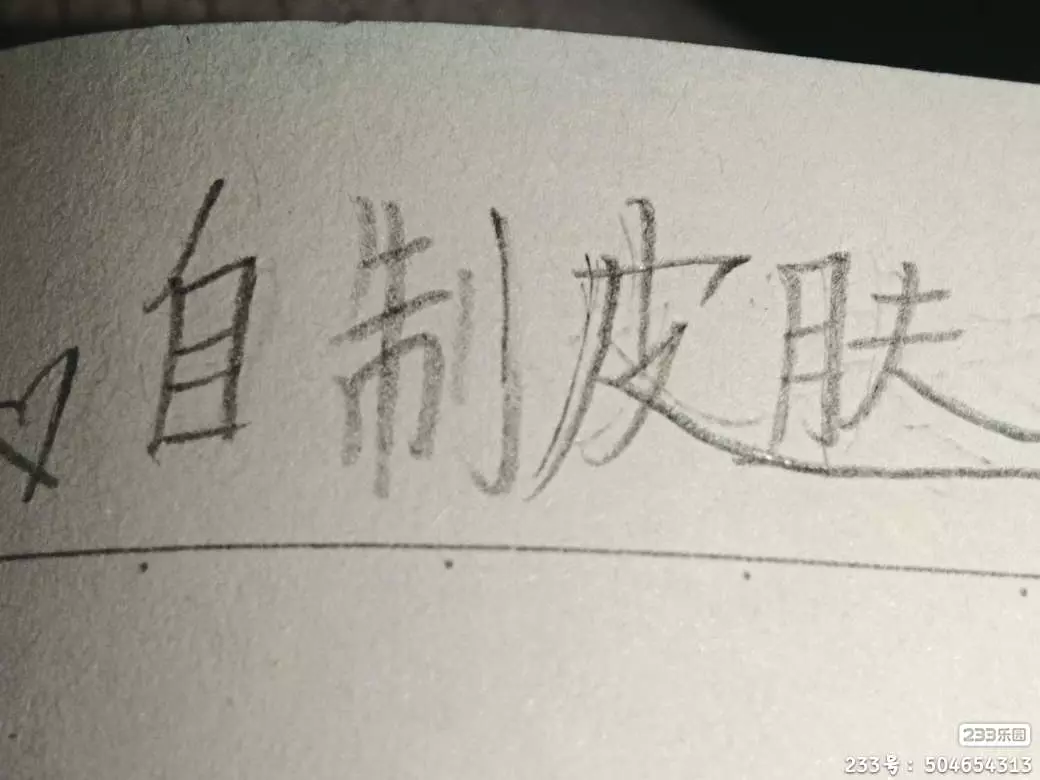 自制皮肤
233乐园
233号：504654313